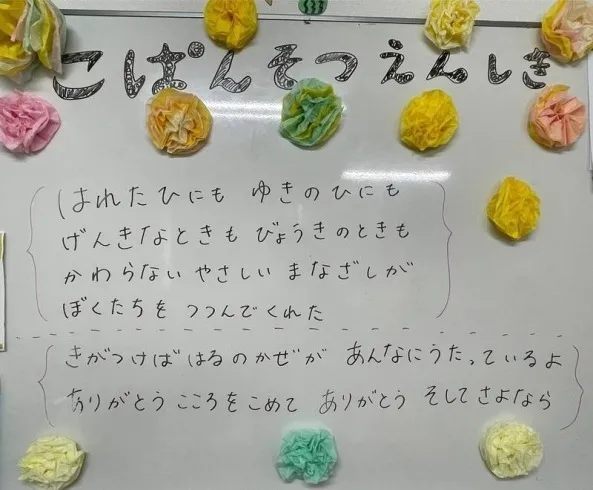 こぱんそつえんしき
はれたひにも ゆきのひにも
げんきなときも びょうきのときも
かわらない やさしい まなざしが
ぼくたちを つつんでくれた
きがつけば はるのかぜが あんなにうたっているよ
ありがとう こころをこめて ありがとう そしてさよなら